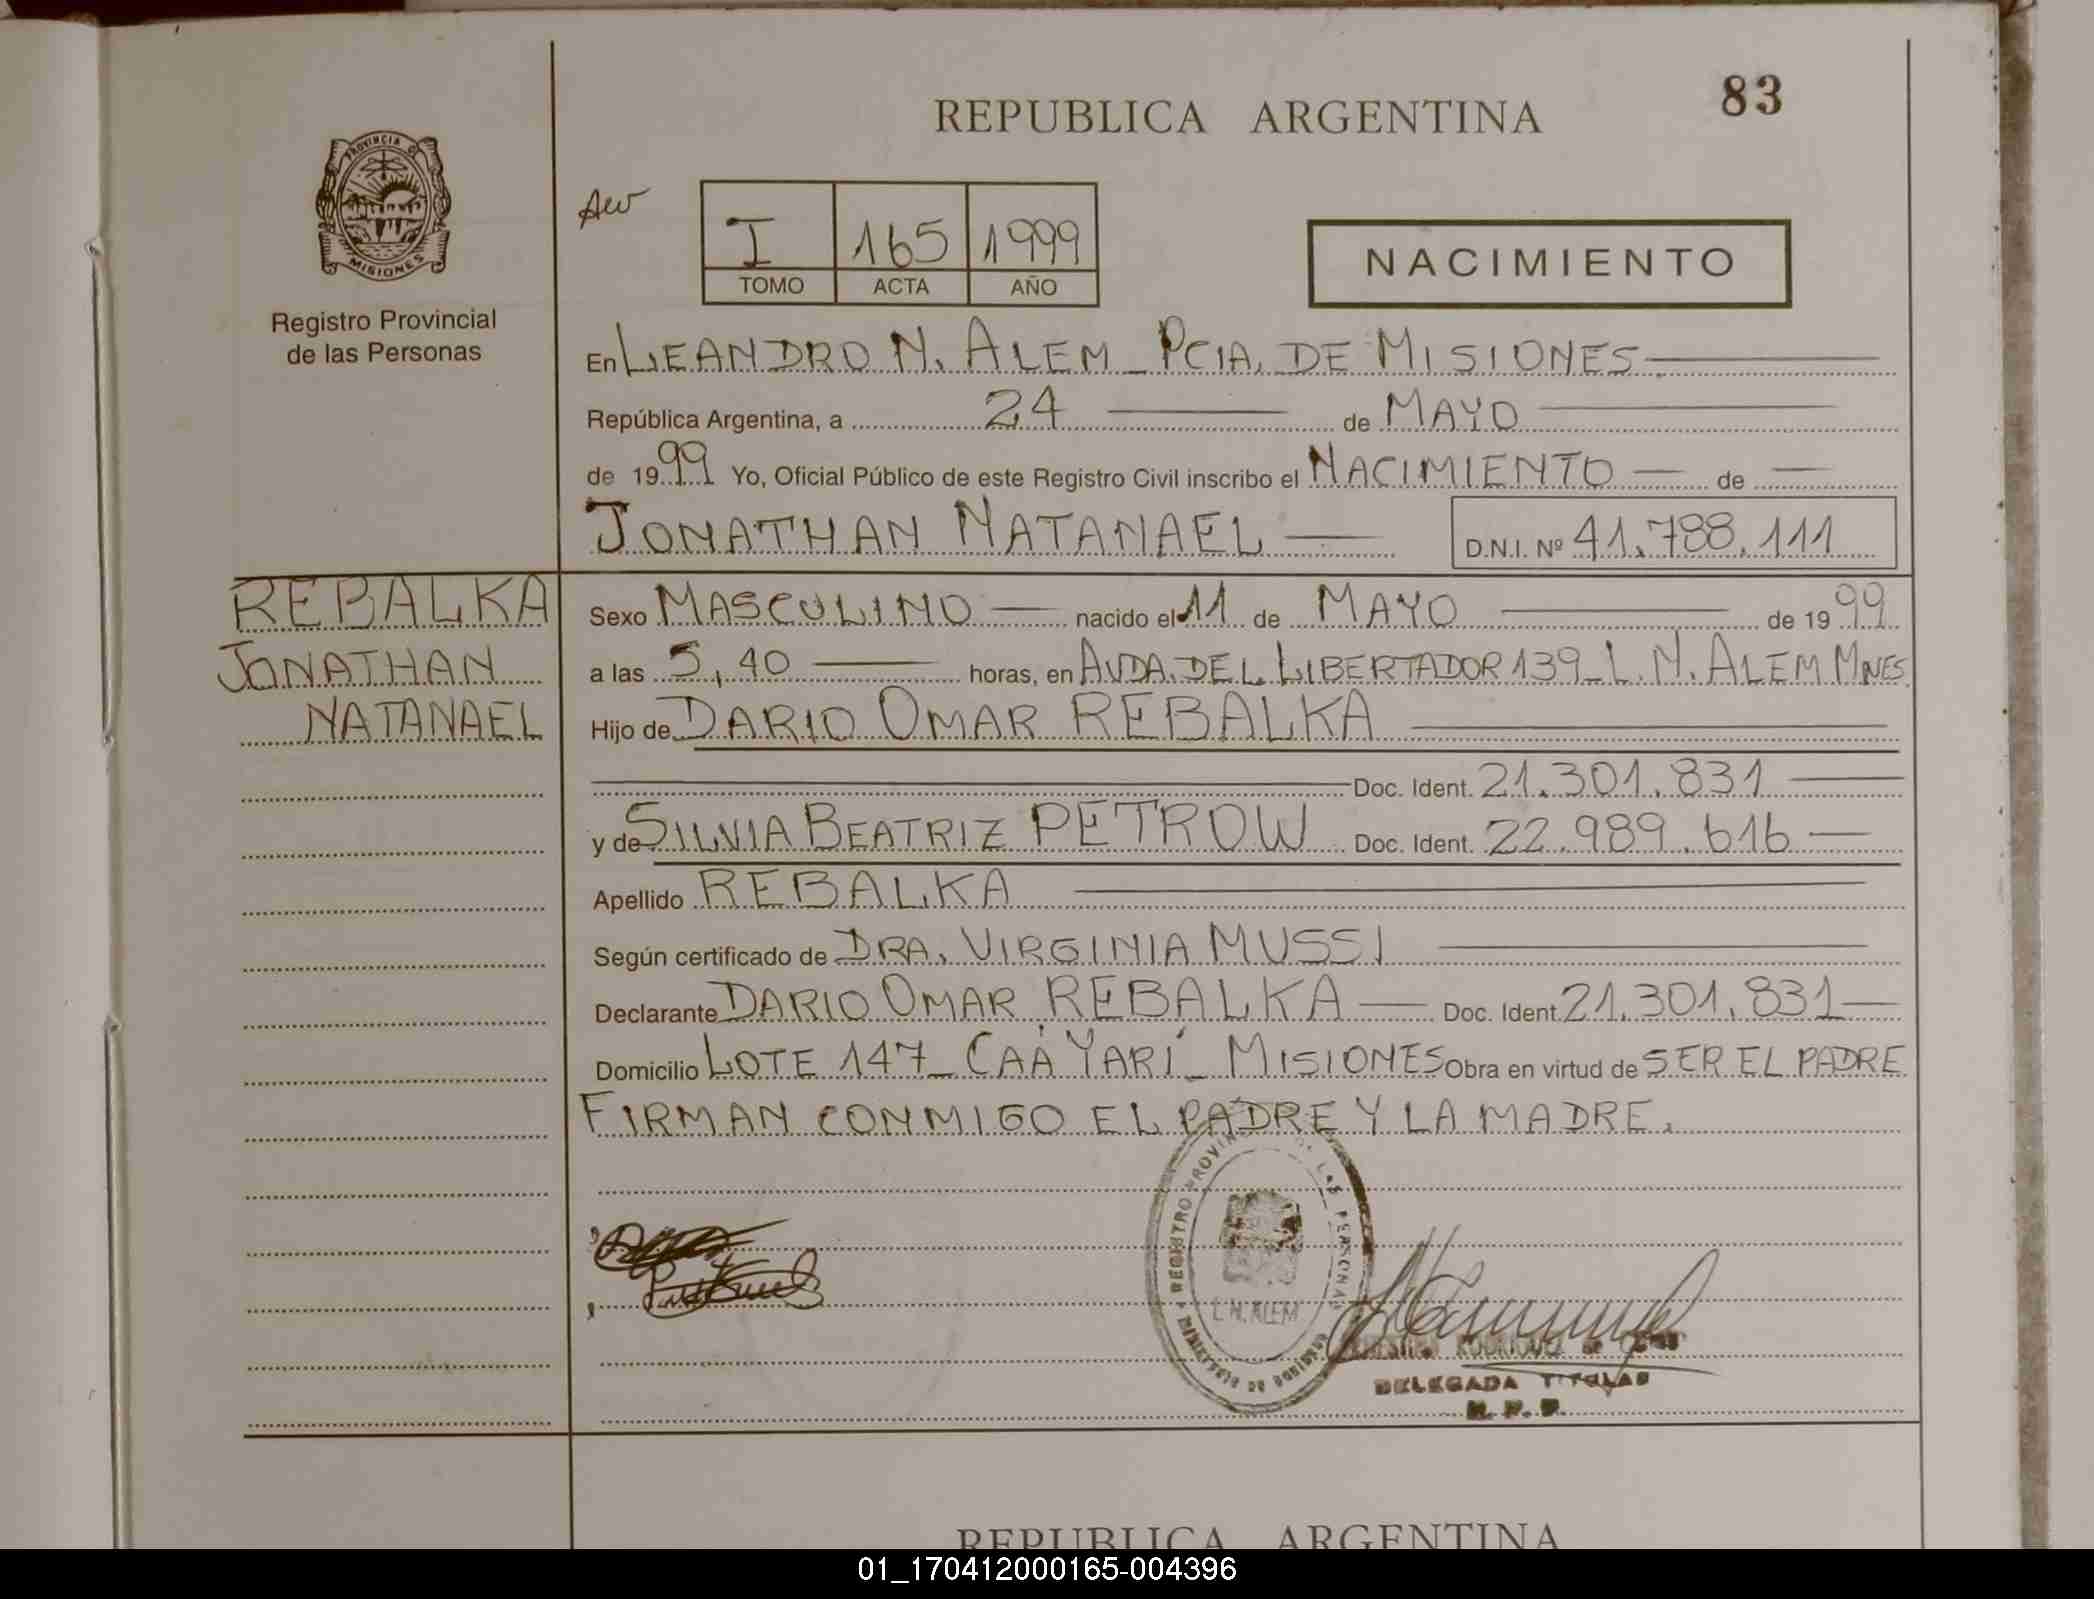 REPUBLICA ARGENTINA
83
PROVINCIA D
MISIONES
Registro Provincial
de las Personas
I 165 1999
TOMO ACTA AÑO
NACIMIENTO
En LEANDRO N. ALEM _ PCIA. DE MISIONES
República Argentina, a 24 de MAYO
de 1999 Yo, Oficial Público de este Registro Civil inscribo el NACIMIENTO de
JONATHAN NATANAEL
D.N.I. Nº 41.788.111
REBALKA
JONATHAN
NATANAEL
Sexo MASCULINO nacido el 11 de MAYO de 1999
a las 5,40 horas, en AVDA. DEL LIBERTADOR 139_ L. N. ALEM MNES.
Hijo de DARIO OMAR REBALKA
Doc. Ident. 21.301.831
y de SILVIA BEATRIZ PETROW Doc. Ident. 22.989.616
Apellido REBALKA
Según certificado de DRA. VIRGINIA MUSSI
Declarante DARIO OMAR REBALKA Doc. Ident. 21.301.831
Domicilio LOTE 147_ CAÁ YARÍ_ MISIONES Obra en virtud de SER EL PADRE
FIRMAN CONMIGO EL PADRE Y LA MADRE.
REGISTRO PROVIN LAS PERSONAS
L. N. ALEM
MINISTERIO DE GOBIERNO
RODRIGUEZ DE
DELEGADA TITULAR
R. P. P.
REPUBLICA ARGENTINA
01_170412000165-004396